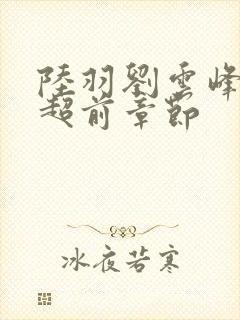 陸羽劉雲峰
超前章節
冰夜若寒